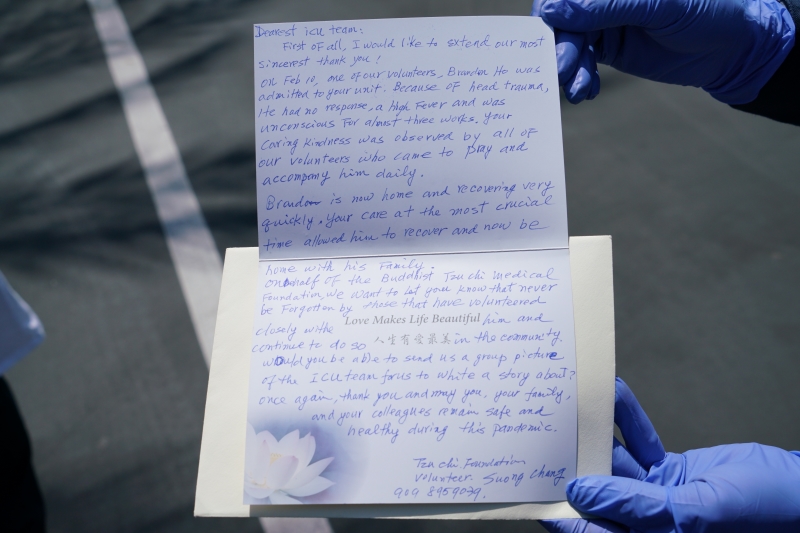 Dearest ICU team:
First of all, I would like to extend our most
sincerest thank you!
On Feb 10, one of our volunteers, Brandon Ho was
admitted to your unit. Because of head trauma,
He had no response, a high Fever and was
unconscious For almost three works. Your
Caring Kindness was observed by all of
our volunteers who came to pray and
accompany him daily.
Brandon is now home and recovering very
quickly. Your care at the most crucial
time allowed him to recover and now be
home with his Family.
On behalf of the Buddhist Tzu chi medical
Foundation, we want to let you know that never
be Forgotten by those that have volunteered
closely withe Love Makes Life Beautiful him and
continue to do so 人生有愛最美 in the community.
Would you be able to send us a group picture
of the ICU team for us to write a story about?
once again, thank you and may you, your family,
and your colleagues remain safe and
healthy during this pandemic.
Tzu chi Foundation
Volunteer. Suong Chang
909 8959029.